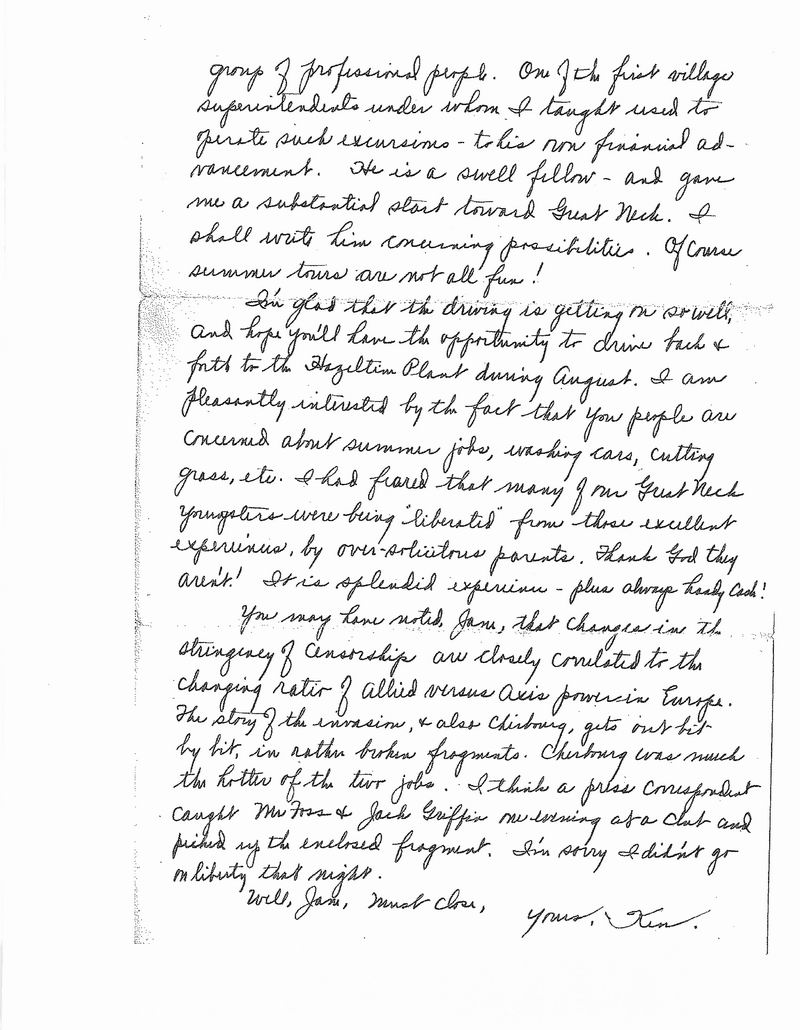 group of professional people. One of the first village
superintendents under whom I taught used to
operate such excursions - to his own financial ad-
vancement. He is a swell fellow - and gave
me a substantial start toward Great Neck. I
shall write him concerning possibilities. Of course
summer tours are not all fun!
I'm glad that the driving is getting on so well,
and hope you'll have the opportunity to drive back &
forth to the Hazeltine Plant during August. I am
pleasantly interested by the fact that you people are
concerned about summer jobs, washing cars, cutting
grass, etc. I had feared that many of our Great Neck
youngsters were being "liberated" from those excellent
experiences, by over-solicitous parents. Thank God they
aren't! It is splendid experience - plus always handy cash!
You may have noted, Jane, that changes in the
stringency of censorship are closely correlated to the
changing ratio of Allied versus Axis power in Europe.
The story of the invasion, & also Cherbourg, gets out bit
by bit, in rather broken fragments. Cherbourg was much
the hotter of the two jobs. I think a press correspondent
caught Mr Foss & Jack Griffin one evening at a Club and
picked up the enclosed fragment. I'm sorry I didn't go
on liberty that night.
Well, Jane, must close,
Yours, Ken.